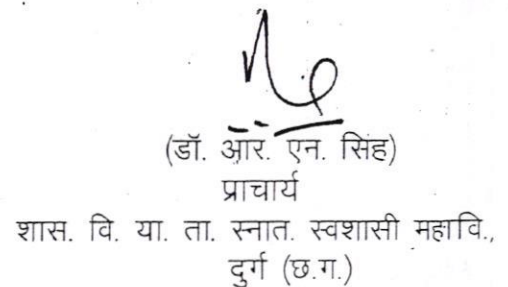 (डॉ. आर. एन. सिंह)
प्राचार्य
शास. वि. या. ता. स्नात. स्वशासी महावि.,
दुर्ग (छ.ग.)